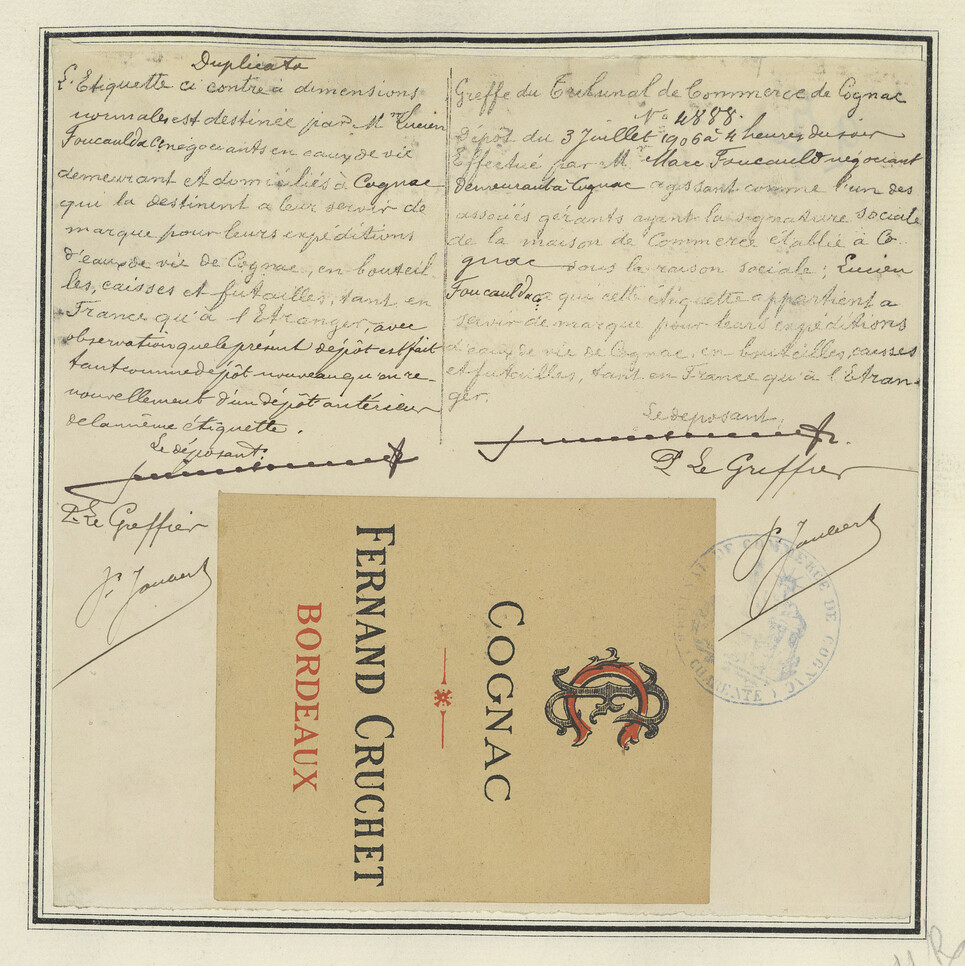 Duplicata
L'Etiquette ci contre à dimensions
normales est destinée par Mrs Lucien
Foucauld & Cie négociants en eaux de vie
demeurant et domiciliés à Cognac
qui la destinent a leur servir de
marque pour leurs expéditions
d'eaux de vie de Cognac, en bouteil-
les, caisses et futailles, tant en
France qu'à l'Etranger, avec
observation que le présent dépôt est fait
tant comme dépôt nouveau qu'en re-
nouvellement d'un dépôt antérieur
de la même étiquette.
Le déposant.
P. Le Greffier
Greffe du Tribunal de Commerce de Cognac
No 4888.
Dépôt du 3 Juillet 1906 à 4 heures du soir
Effectué par Mr Marc Foucauld négociant
demeurant à Cognac agissant comme l'un des
associés gérants ayant la signature sociale
de la maison de Commerce établie à Co-
gnac sous la raison sociale: Lucien
Foucauld & Cie qui cette étiquette appartient a
servir de marque pour leurs expéditions
d'eaux de vie de Cognac, en bouteilles, caisses
et futailles, tant en France qu'à l'Etran-
ger.
Le déposant,
P. Le Greffier
COGNAC
FERNAND CRUCHET
BORDEAUX
DE COMMERCE DE COGNAC
(CHARENTE)